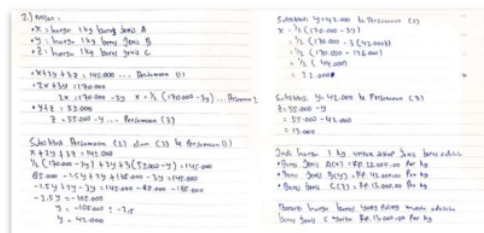 2) Misal :
• x = harga 1 kg beras jenis A
• y = harga 1 kg beras jenis B
• z = harga 1 kg beras jenis C
• x+2y+3z = 145.000 ... Persamaan (1)
• 2x + 3y = 170.000
2x = 170.000 - 3y x = 1/2 (170.000 - 3y) ... Persamaan 2
• y+z = 55.000
z = 55.000 - y ... Persamaan (3)
Substitusi Persamaan (2) dan (3) ke Persamaan (1)
x + 2y + 3z = 145.000
1/2 (170.000 - 3y) + 2y + 3(55.000 - y) = 145.000
85.000 - 1.5y + 2y + 165.000 - 3y = 145.000
-1.5y + 2y - 3y = 145.000 - 85.000 - 165.000
-2.5y = -105.000
y = -105.000 : -2,5
y = 42.000
Substitusi y = 42.000 ke Persamaan (2)
x = 1/2 (170.000 - 3y)
= 1/2 (170.000 - 3(42.000))
= 1/2 (170.000 - 126.000)
= 1/2 (44.000)
= 22.000
Substitusi y = 42.000 ke Persamaan (3)
z = 55.000 - y
= 55.000 - 42.000
= 13.000
Jadi harga 1 kg untuk setiap jenis beras adalah
• Beras jenis A(x) = Rp. 22.000,00 Per kg
• Beras jenis B(y) = Rp. 42.000,00 Per kg
• Beras jenis C(z) = Rp. 13.000,00 Per kg
harga beras yang Paling murah adalah
Beras jenis C yaitu Rp. 13.000,00 Per kg